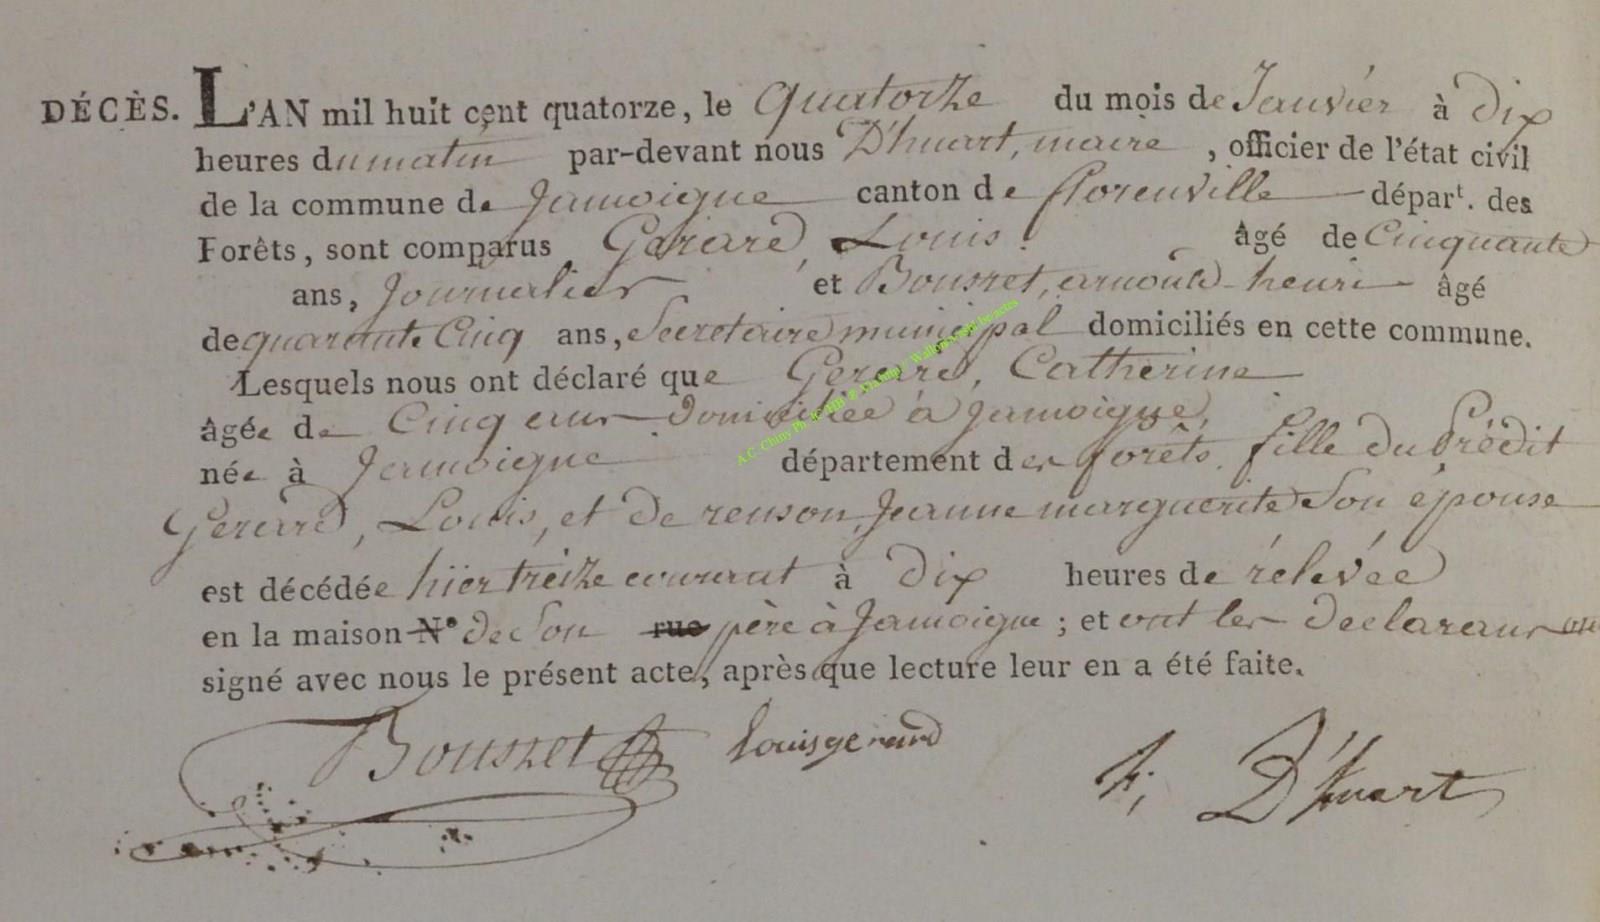 DÉCÈS. L'AN mil huit cent quatorze, le quatorze du mois de Janviér à dix
heures du matin par-devant nous D'huart, maire, officier de l'état civil
de la commune de Jamoigne canton de florenville départ. des
Forêts, sont comparus Gerard, Louis. âgé de Cinquante
ans, Journalier et Bousret, arnould-henri âgé
de quarante Cinq ans, Secretaire municipal domiciliés en cette commune.
Lesquels nous ont déclaré que Gerard, Catherine
âgée de Cinq ans domiciliée à Jamoigne,
née à Jamoigne département des forêts. fille du Prédit
Gerard, Louis, et de renson, Jeanne marguerite Son épouse
est décédée hier treize courant à dix heures de rélevée
en la maison N° de Son rue père à Jamoigne ; et ont les declarans
signé avec nous le présent acte, après que lecture leur en a été faite.
Bousret louis gerard h; D'huart
A.C. Chiny Ph.